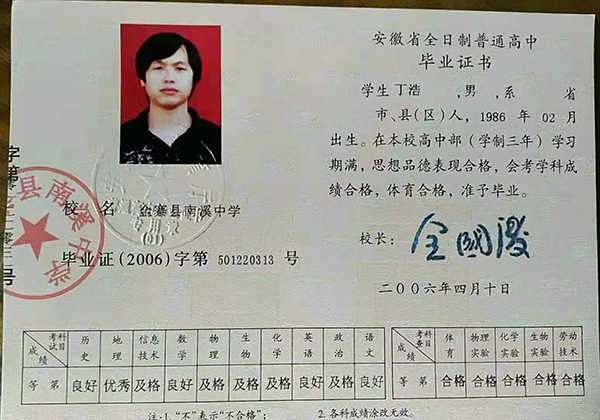 安徽省全日制普通高中
毕业证书
学生丁浩 ,男,系 省
市、县(区)人,1986 年 02 月
出生。在本校高中部(学制三年)学习
期满,思想品德表现合格,会考学科成
绩合格,体育合格,准予毕业。
校长:
二〇〇六年四月十日
校 名 金寨县南溪中学
毕业证(2006)字第 501220313 号
县南溪中学
考试科目 成绩 历史 地理 信息技术 数学 物理 生物 化学 英语 政治 语文
等第 良好 优秀 及格 及格 及格 及格 及格 良好 良好 良好
考查科目 成绩 体育 物理实验 化学实验 生物实验 劳动技术
等第 合格 合格 合格 合格 合格
注:1.“不”表示“不合格”; 2.各科成绩涂改无效。